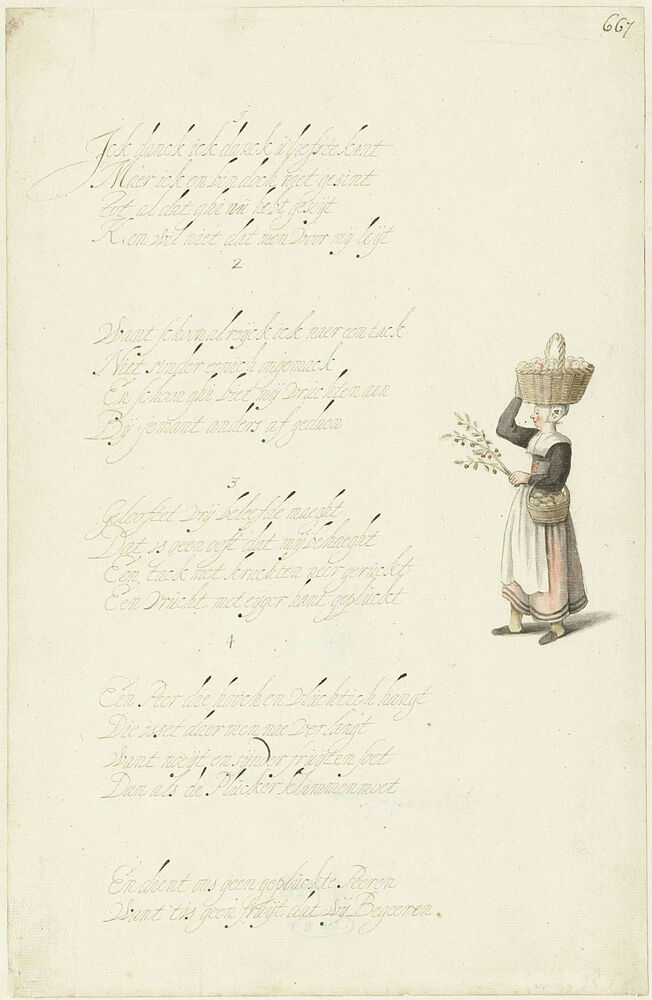 667
1
Ick danck ick danck u liefste kint
Maer ick en bin doch niet gesint
Tot al dat ghi nu hebt geseijt
K, en wil niet dat men voor mij leijt
2
Want schoon al reijck ick naer een tack
Niet sonder eenich ongemack
En schoon ghi biet mij vruchten aen
Bij jemant anders af gedaen
3
Gelooftet vrij beleefde maeght
Dat is geen ooft dat mij behaeght
Een tack met krachten neer geruckt
Een vrucht met eijger hant gepluckt
4
Een Peer die hooch en vluchtich hangt
Die isset daer men nae verlangt
Want noeijt en sijnder fruijten soet
Dan als de Plucker klimmen moet
En dient ons geen gepluckte Peeren
Want tis geen fruijt dat wij Begeeren.